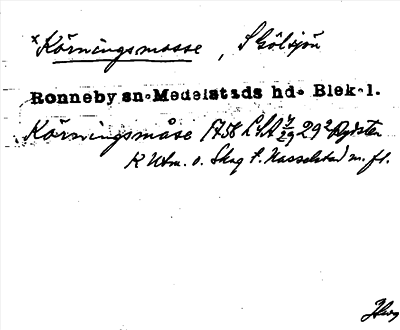 x Körningsmosse, S Gölsjön
Ronneby sn. Medelstads hd. Blek. l.
Körningsmåse 1758 LSA 29² Rydsten
K Utm. o. Skog t. Hasselstad m. fl.